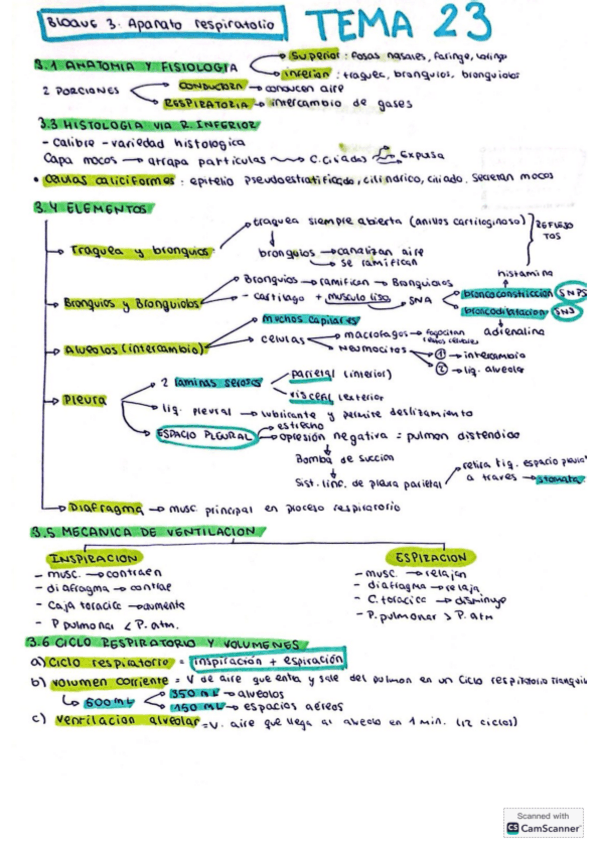 BLOQUE 3: Aparato respiratorio TEMA 23
3.1 ANATOMIA Y FISIOLOGIA
Superior: fosas nasales, faringe, laringe
inferior: traquea, bronquios, bronquiolos
2 PORCIONES
CONDUCTORA → conducen aire
RESPIRATORIA → intercambio de gases
3.3 HISTOLOGIA VIA R. INFERIOR
- Calibre - variedad histologica
Capa mocos → atrapa particulas C. Ciliadas Expulsa
• Celulas caliciformes: epitelio pseudoestratificado, cilindrico, ciliado. Secretan mocos
3.4 ELEMENTOS
→ Traquea y bronquios
traquea siempre abierta (anillos cartilaginoso)
bronquios → canalizan aire
→ se ramifican
histamina
→ Bronquios y Bronquiolos
Bronquios → ramifican → Bronquiolos
- cartilago + musculo liso → SNA
broncoconstriccion SNPS
broncodilatacion SNS
adrenalina
→ Alveolos (intercambio)
muchos capilares
celulas
macrofagos → fagocitan restos celulares
Neumocitos
① → intercambio
② → liq. alveolar
→ Pleura
2 laminas serosas
parietal (interior)
visceral (exterior
liq. pleural → lubricante y permite deslizamiento
ESPACIO PLEURAL
→ estrecho
→ opresión negativa = pulmon distendido
Bomba de succion
Sist. linf. de pleura parietal
retira liq. espacio pleura
a traves → stomata
→ Diafragma → musc principal en proceso respiratorio
3.5 MECANICA DE VENTILACION
INSPIRACION
- musc. → contraen
- diafragma → contrae
- Caja toracica → aumenta
- P pulmonar < P. atm.
ESPIRACION
- musc. → relajan
- diafragma → relaja
- C. toracica → disminuye
- P. pulmonar > P. atm
3.6 CICLO RESPIRATORIO Y VOLUMENES
a) Ciclo respiratorio = inspiración + espiración
b) Volumen corriente = V de aire que entra y sale del pulmon en un ciclo respiratorio tranquil
500 mL
350 mL → alveolos
150 mL → espacios aéreos
c) Ventilacion alveolar = V. aire que llega al alveolo en 1 min. (12 ciclos)
Scanned with
CS CamScanner